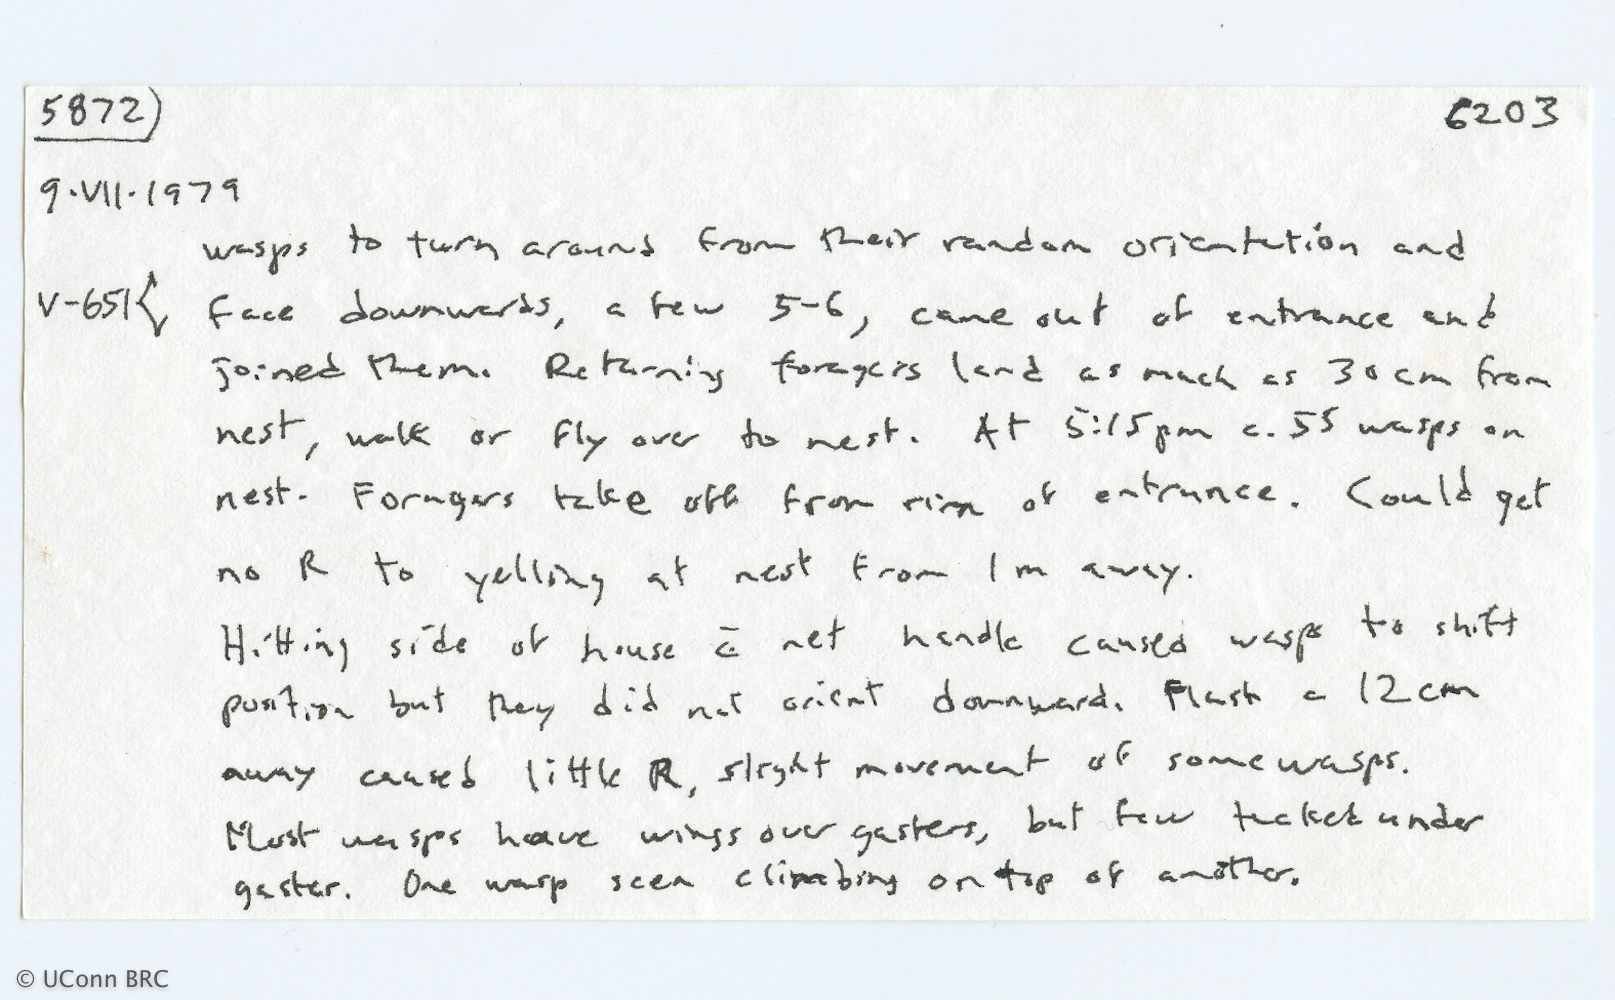 5872) 6203
9.VII.1979
wasps to turn around from their random orientation and
V-651{ face downwards, a few 5-6, came out of entrance and
joined them. Returning foragers land as much as 30 cm from
nest, walk or fly over to nest. At 5:15pm c. 55 wasps on
nest. Foragers take off from rim of entrance. Could get
no R to yelling at nest from 1 m away.
Hitting side of house c̄ net handle caused wasps to shift
position but they did not orient downward. Flash c 12 cm
away caused little R, slight movement of some wasps.
Most wasps have wings over gasters, but few tucked under
gaster. One wasp seen climbing on top of another.
© UConn BRC